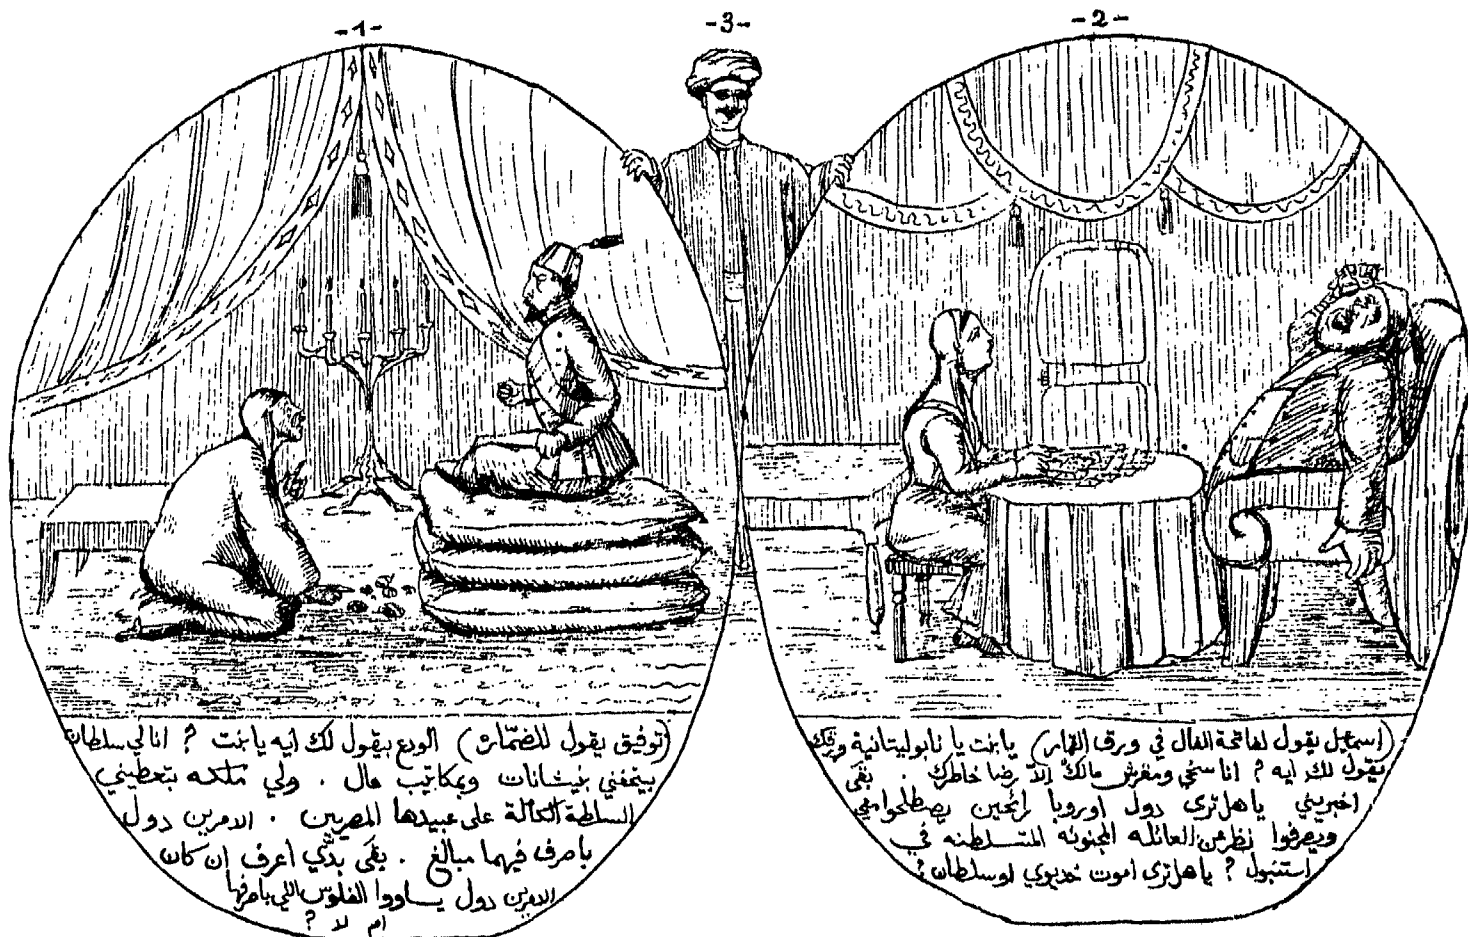 -1-
-3-
-2-
(توفيق يقول للضمّاره) الودع بيقول لك ايه يا بنت ? انا لي سلطان
بيتحفني بنيشانات وبمكاتيب مال . ولي ملكه بتعطيني
السلطة الكاملة على عبيدها المصريين . الامرين دول
باصرف فيهما مبالغ . بقى بدّي اعرف ان كان
الامرين دول يساووا الفلوس اللي باصرفها
ام لا ?
(إسمعيل يقول لفاتحة الفال في ورق القمار) يا بنت يا نابوليتانية ورقك
بيقول لك ايه ? انا سخي ومغرش مالك إلاّ رضا خاطرك . بقى
اخبريني يا هل ترى دول اوروپا رائحين يصطلحوا معي
ويصرفوا نظر عن العائله المجنونه المتسلطنه في
استنبول ? يا هل ترى اموت خديوي او سلطان ?